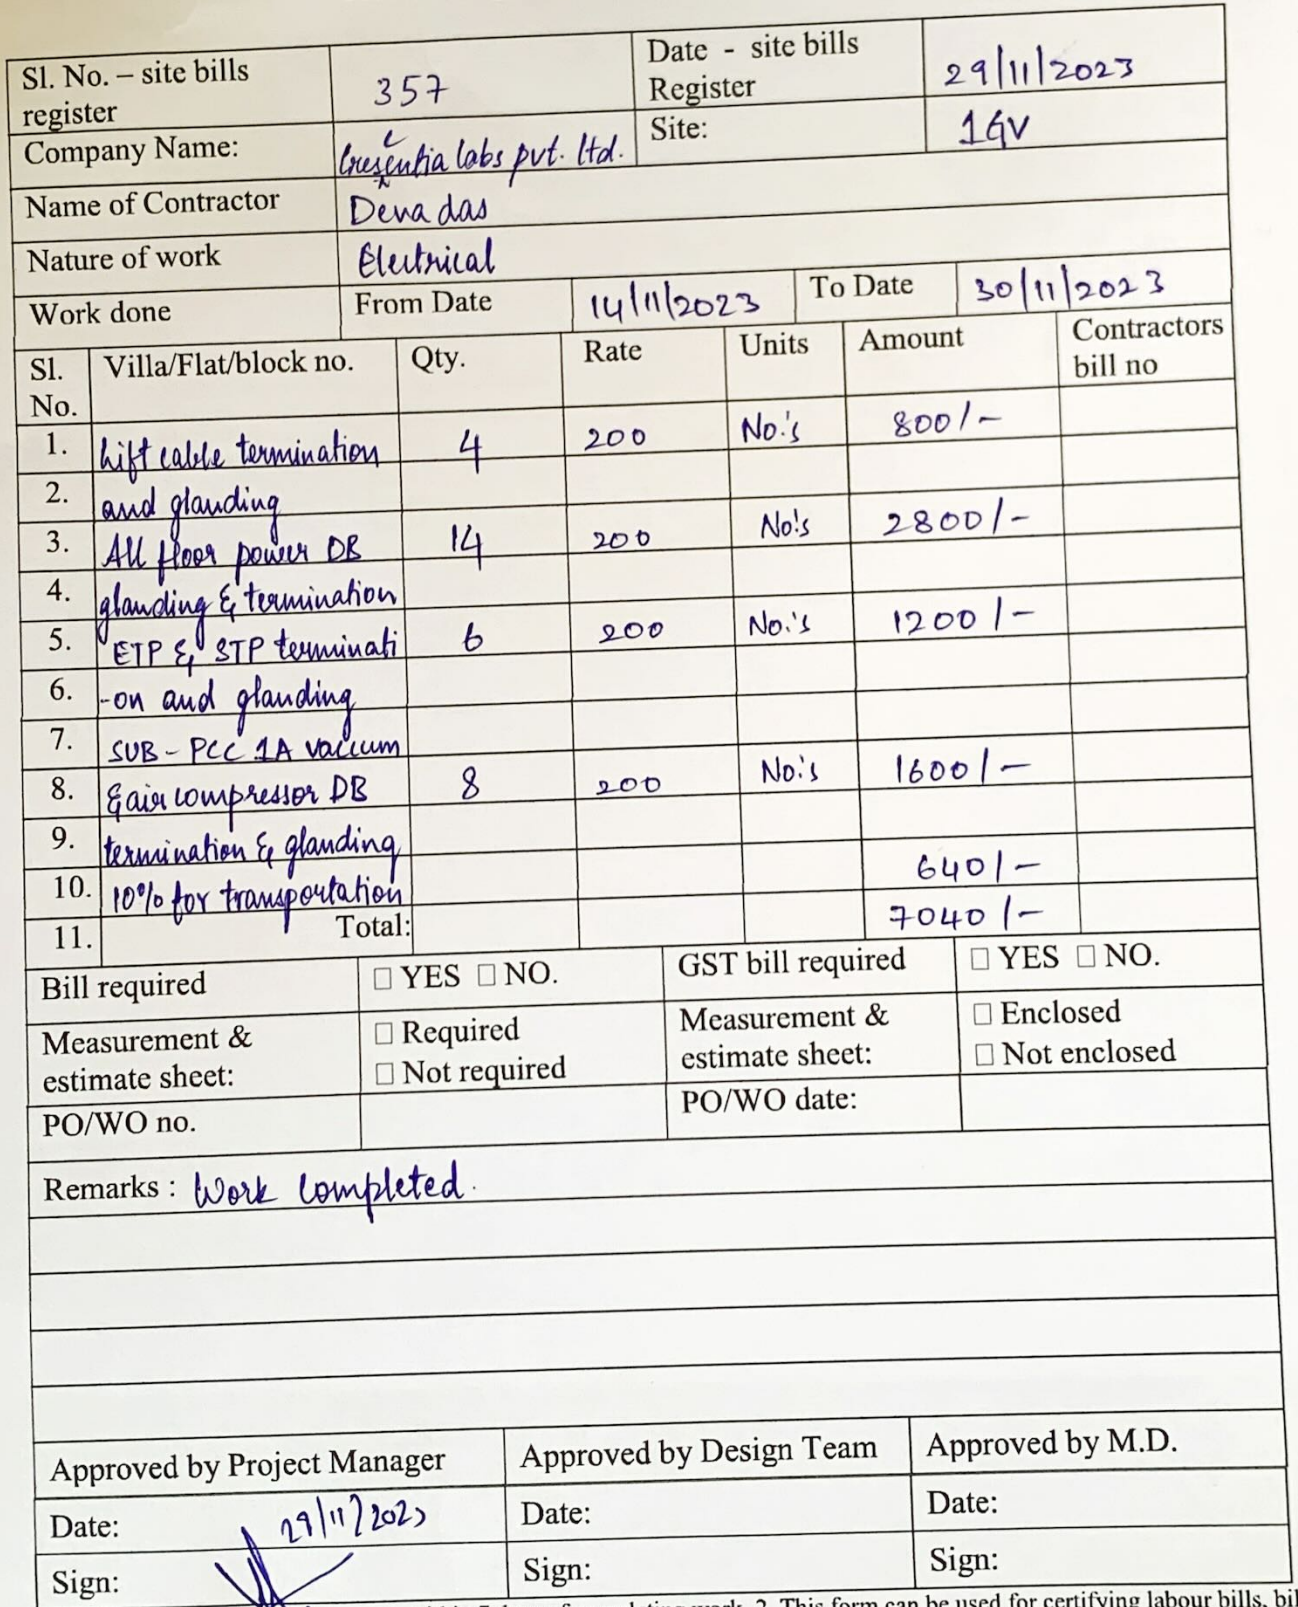 Sl. No. – site bills register 357 Date - site bills Register 29/11/2023
Company Name: Crescentia labs pvt. ltd. Site: 1GV
Name of Contractor Deva das
Nature of work Electrical
Work done From Date 14/11/2023 To Date 30/11/2023
Sl. No. Villa/Flat/block no. Qty. Rate Units Amount Contractors bill no
1. Lift cable termination 4 200 No.'s 800/-
2. and glanding
3. All floor power DB 14 200 No.'s 2800/-
4. glanding & termination
5. ETP & STP terminati 6 200 No.'s 1200/-
6. -on and glanding
7. SUB - PCC 1A vaccum
8. & air compressor DB 8 200 No.'s 1600/-
9. termination & glanding
10. 10% for transportation 640/-
11. Total: 7040/-
Bill required □ YES □ NO. GST bill required □ YES □ NO.
Measurement & estimate sheet: □ Required □ Not required Measurement & estimate sheet: □ Enclosed □ Not enclosed
PO/WO no. PO/WO date:
Remarks : Work completed.
Approved by Project Manager Approved by Design Team Approved by M.D.
Date: 29/11/2023 Date: Date:
Sign: Sign: Sign:
2. This form can be used for certifying labour bills,